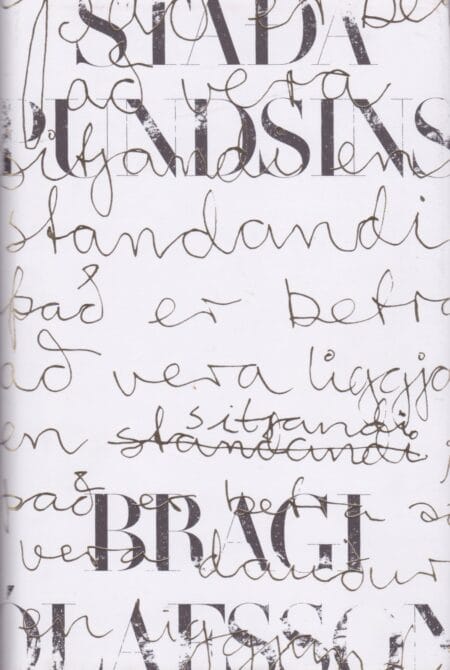 það er bet
STAÐA
að vera
PUNDSINS
sitjandi en
standandi
það er betra
að vera liggja
sitjandi
en standandi
það er betra að
BRAGI
vera dauður
ÓLAFSSON
en liggjandi